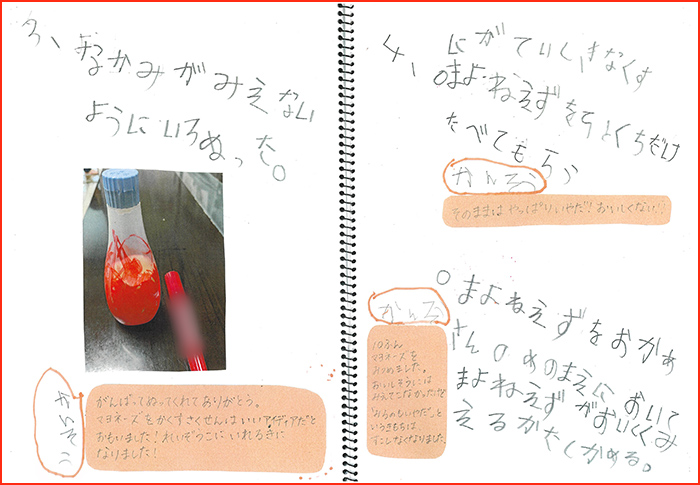 3、なかみがみえない
ようにいろぬった。
かんそう
がんばってぬってくれてありがとう。
マヨネーズをかくすさくせんはいいアイディアだと
おもいました！れいぞうこにいれるきに
なりました！
4、にがていしきなくす
○まよねえずをちょくちだけ
たべてもらう
かんそう
そのままはやっぱりいやだ！おいしくない！！
○まよねえずをおかあ
さんのめのまえにおいて
まよねえずがおいくみ
えるかたしかめる。
かんそう
10ぷん
マヨネーズを
みつめました。
おいしそうには
みえてこなかったけど
「みるのもいやだ」と
いうきもちは
すこしなくなりました